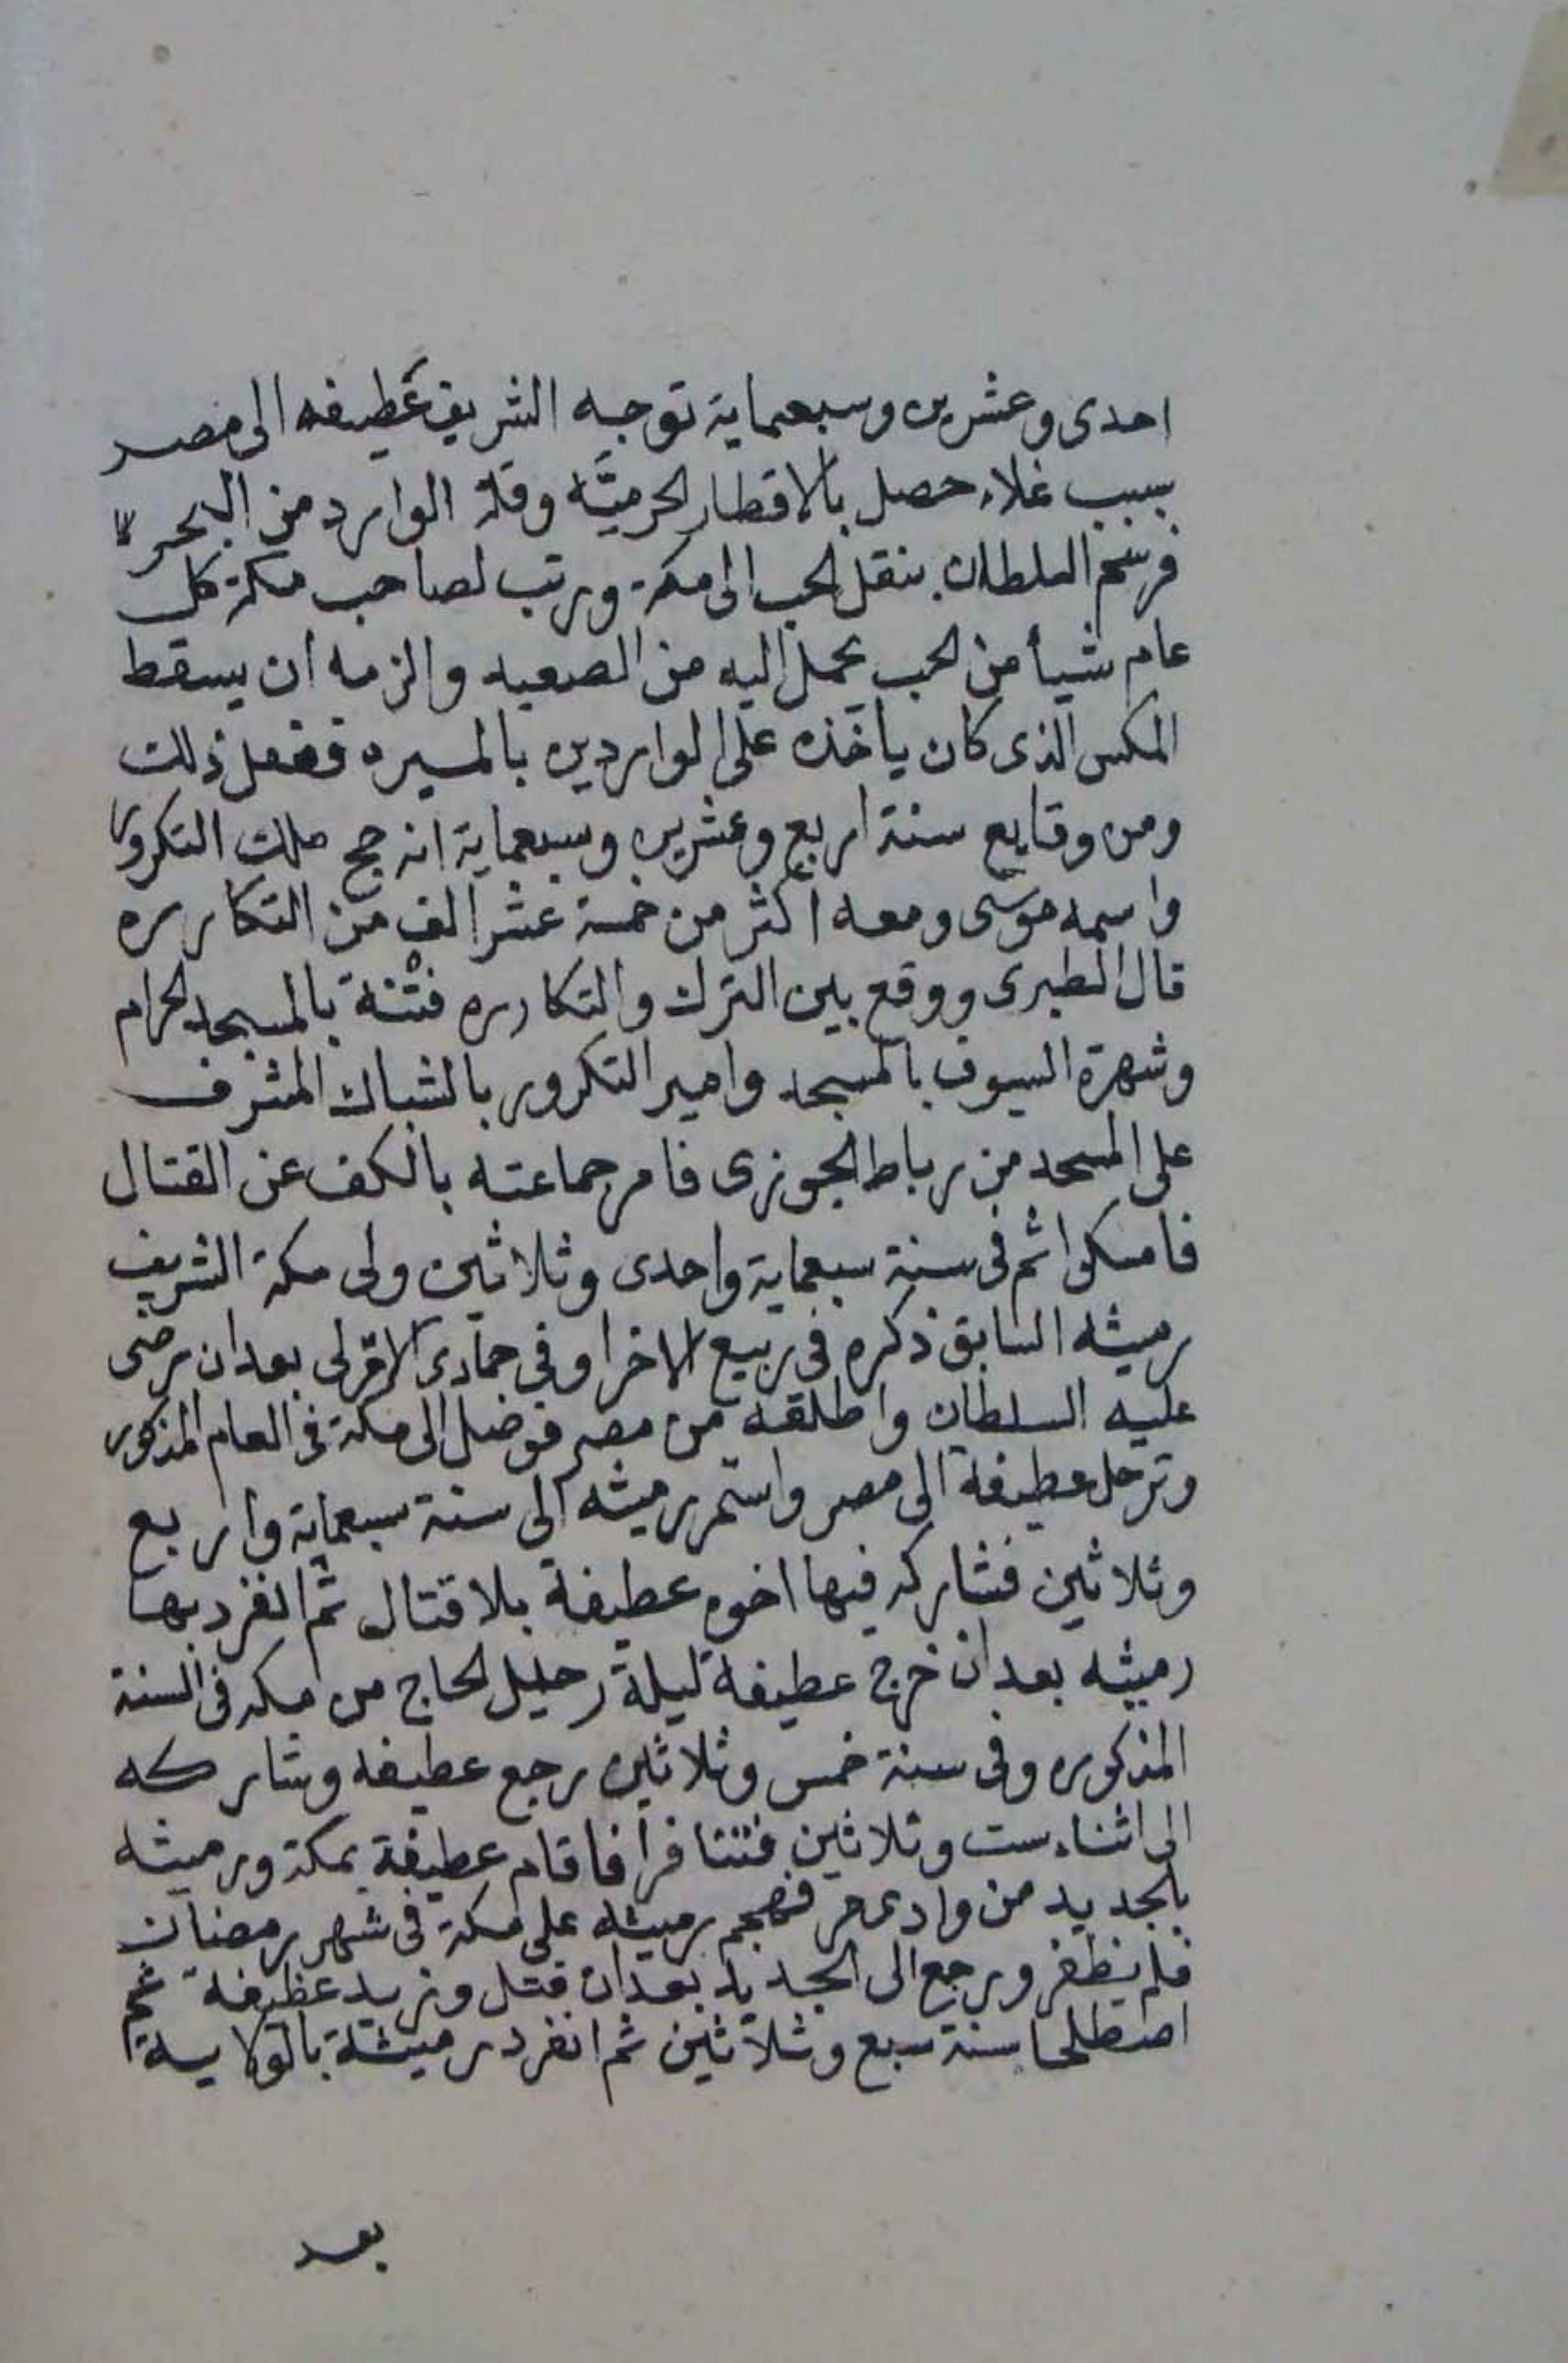 احدى وعشرين وسبعماية توجه الشريف عطيفه الى مصر
بسبب غلاء حصل بالاقطار الحرميّه وقلة الوارد من البحر
فرسم السلطان بنقل الحب الى مكة ورتب لصاحب مكة كل
عام شيأ من الحب يحمل اليه من الصعيد والزمه ان يسقط
المكس الذى كان ياخذه على الواردين بالميره ففعل ذلك
ومن وقايع سنة اربع وعشرين وسبعماية انه حج ملك التكرور
واسمه موسى ومعه اكثر من خمسة عشر الف من التكارره
قال الطبرى ووقع بين الترك والتكارره فتنة بالمسجد الحرام
وشهرة السيوف بالمسجد وامير التكرور بالشباك المشرف
على المسجد من رباط الجوزى فامر جماعته بالكف عن القتال
فامسكوا ثم فى سنة سبعماية واحدى وثلاثين ولى مكة الشريف
رميثه السابق ذكره فى ربيع الاخر او فى جمادى الاولى بعد ان رضى
عليه السلطان واطلقه من مصر فوصل الى مكة فى العام المذكور
وترحل عطيفة الى مصر واستمر رميثه الى سنة سبعماية واربع
وثلاثين فشاركه فيها اخوه عطيفة بلا قتال ثم انفرد بها
رميثه بعد ان خرج عطيفة ليلة رحيل الحاج من مكه فى السنة
المذكوره وفى سنة خمس وثلاثين رجع عطيفه وشاركه
الى اثناء ست وثلاثين فتنافرا فاقام عطيفة بمكة ورميثه
بالجديد من وادى مر فهجم رميثه على مكة فى شهر رمضان
فلم يظفر ورجع الى الجديد بعد ان قتل وزير عطيفة ثم
اصطلحا سنة سبع وثلاثين ثم انفرد رميثة بالولاية
بعد